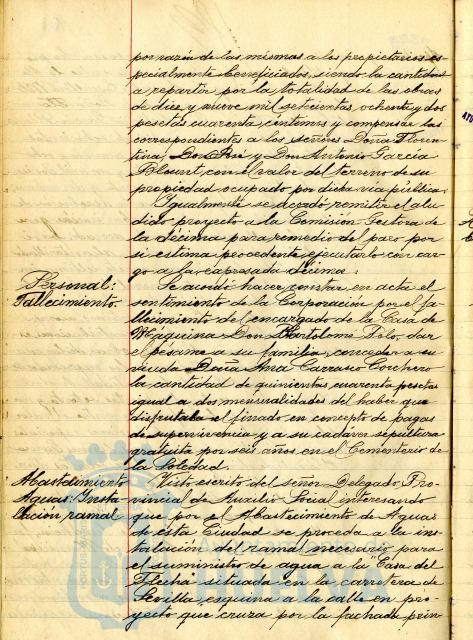 por razón de las mismas a los propietarios es-
pecialmente beneficiados, siendo la cantidad
a repartir por la totalidad de las obras
de diez y nueve mil setecientas ochenta y dos
pesetas cuarenta centimos y compensar las
correspondientes a los señores Doña Floren-
tina, Don José y Don Antonio García
Blount, con el valor del terreno de su
propiedad ocupado por dicha via pública.
Igualmente se acordó remitir el alu-
dido proyecto a la Comisión Gestora de
la décima para remedio del paro por
si estima procedente ejecutarlo con car-
go a la expresada décima.
Personal:
Fallecimiento.
Se acordó hacer constar en acta el
sentimiento de la Corporación por el fa-
llecimiento del encargado de la Casa de
Máquina Don Bartolomé Polo, dar
el pesame a su familia, conceder a su
viuda Doña Ana Carrasco Corchero
la cantidad de quinientas cuarenta pesetas
igual a dos mensualidades del haber que
disfrutaba el finado en concepto de pagas
de supervivencia y a su cadáver sepultura
gratuita por seis años en el Cementerio de
la Soledad.
Abastecimiento
Aguas: Insta
lación ramal
Visto escrito del señor Delegado Pro-
vincial de Auxilio Social interesando
que por el Abastecimiento de Aguas
de esta Ciudad se proceda a la ins-
talación del ramal necesario para
el suministro de agua a la Casa del
Flecha situada en la carretera de
Sevilla, esquina a la calle en pro-
yecto que cruza por la fachada prin